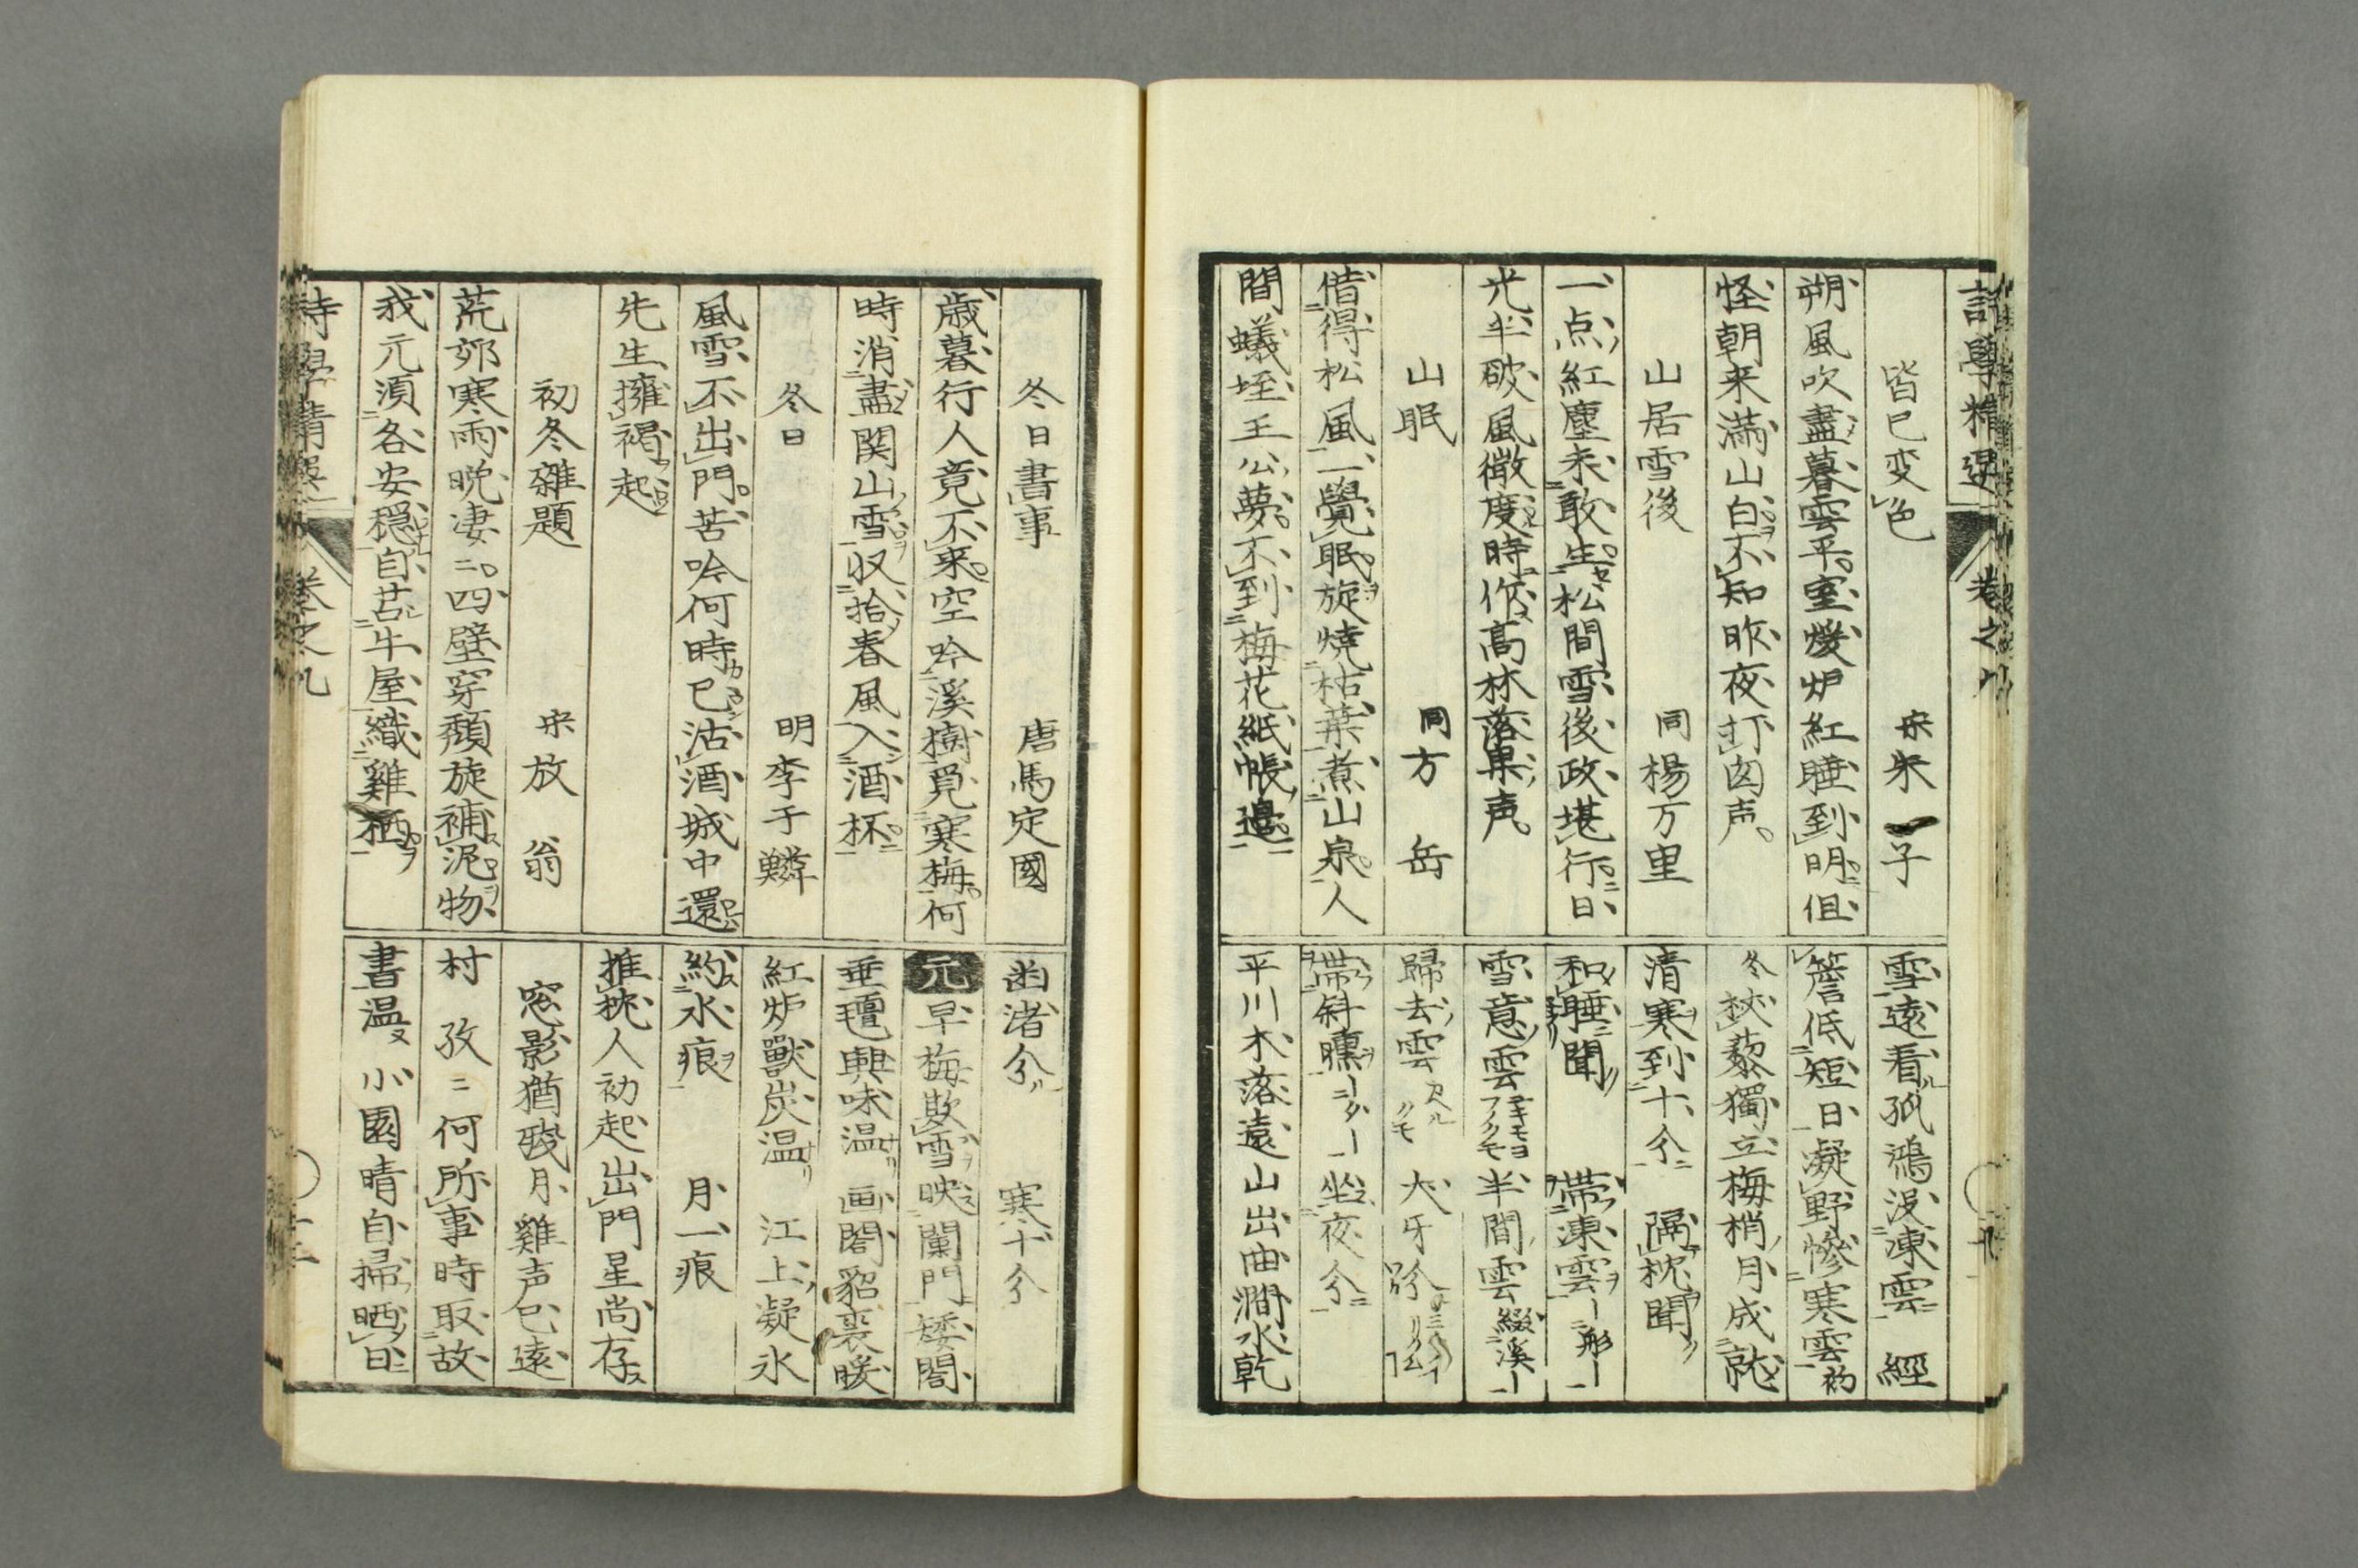 詩學精選 卷之九
皆已変色 宋朱 子
朔風吹盡暮雲平室煖炉紅睡到明但
怪朝来満山白不知昨夜打囪声
山居雪後 同楊万里
一点紅塵未敢生松間雪後政堪行日
光半破風微度時作高林落果声
山眠 同方岳
借得松風一覺眠旋焼枯葉煮山泉人
間蟻垤王公夢不到梅花紙帳邉
雪遠看孤鴻没凍雲 經
簷低短日凝野惨寒雲初
冬杖藜獨立梅梢月成就
清寒到十分 隔枕聞
和睡聞 帶凍雲
雪意雲 半間雲 綴溪
歸去雲 犬牙分
帶斜曛 坐夜分
平川木落遠山出曲澗水乾
冬日書事 唐馬定國
歳暮行人竟不来空吟溪樹覓寒梅何
時消盡関山雪収拾春風入酒杯
冬日 明李于鱗
風雪不出門苦吟何時已沽酒城中還
先生擁褐起
初冬雜題 宋放翁
荒郊寒雨晩凄〻四壁穿頽旋補泥物
我元須各安穏自苫牛屋織雞栖
渚分 寒十分
元 早梅欺雪映闌門矮閤
垂氊興味温 画閤貂裘暖
紅炉獸炭温 江上凝氷
約水痕 月一痕
推枕人初起出門星尚存
窓影猶残月雞声已遠
村 孜〻何所事時取故
書温 小園晴自掃晒日
詩學精選 卷之九